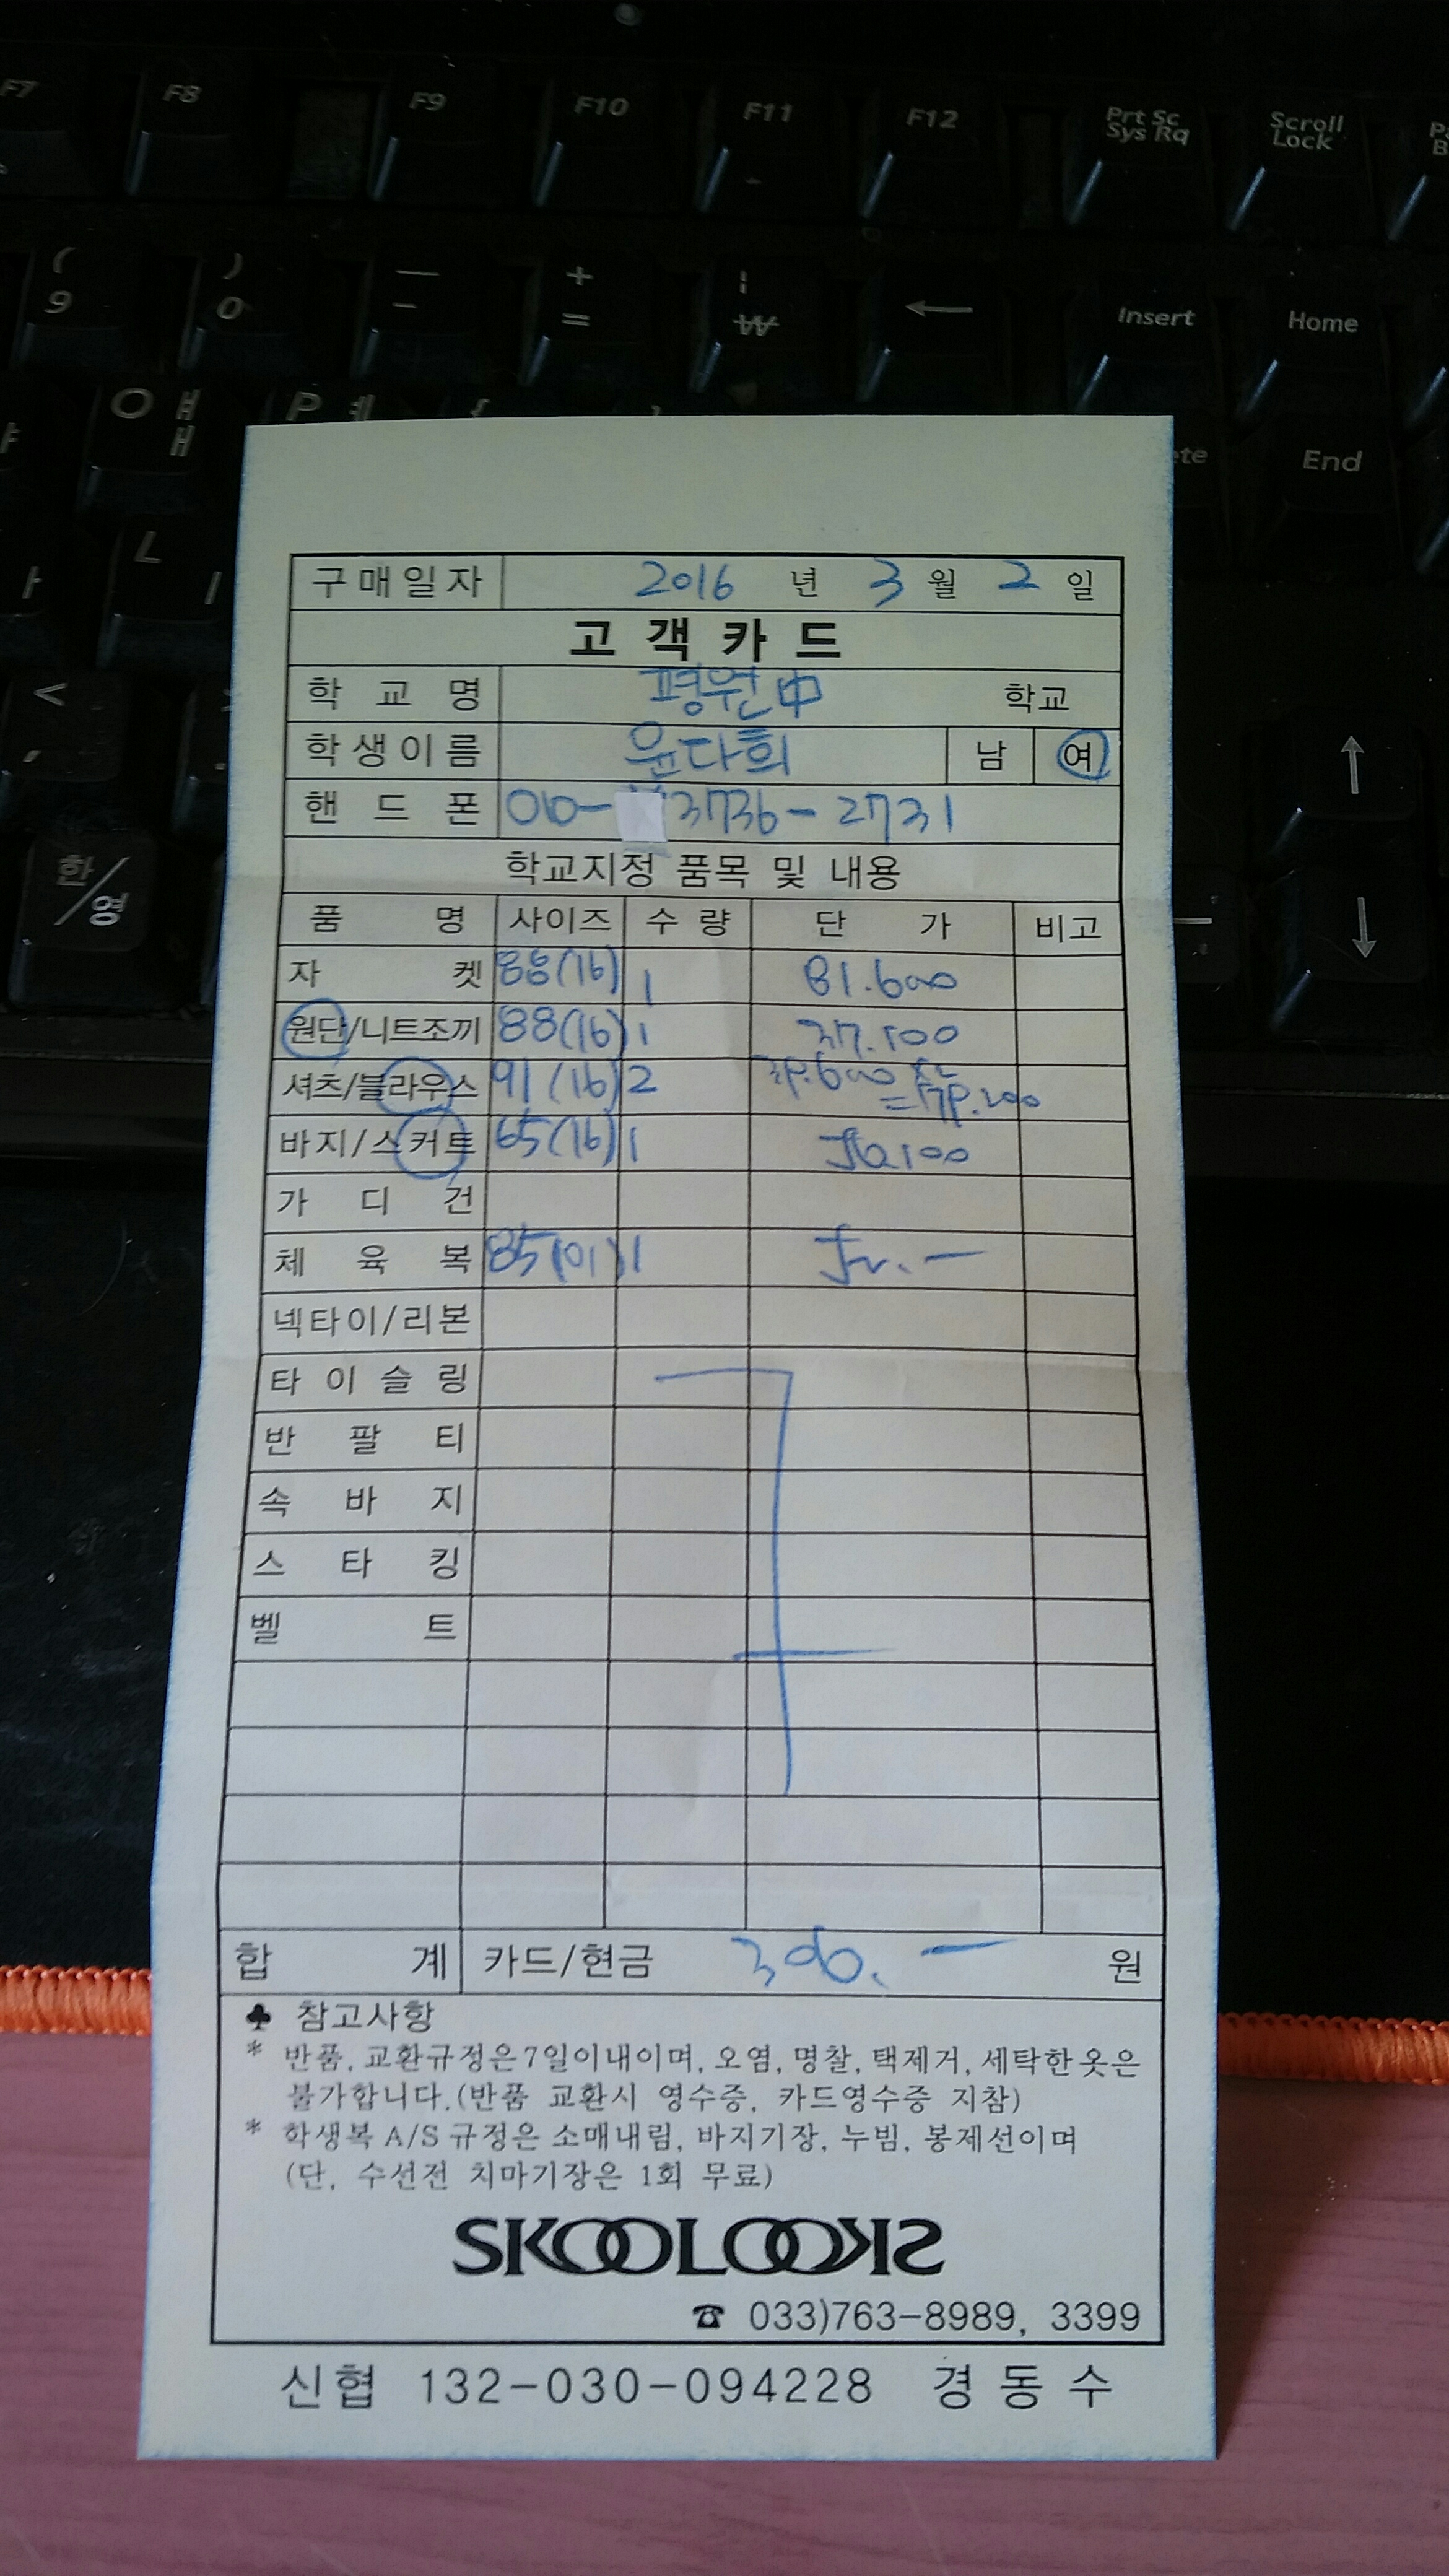 F7 F8 F9 F10 F11 F12 Prt Sc Sys Rq Scroll Lock
( 9 ) 0 — - + = ₩ ← Insert Home
O ㅒ ㅐ P ㅖ { } End
L ㅣ
< ,
한/영
↑
↓
구매일자 2016 년 3 월 2 일
고객카드
학교명 평원中 학교
학생이름 윤다희 남 여
핸드폰 010- 3736-2731
학교지정 품목 및 내용
품명 사이즈 수량 단가 비고
자켓 88(16) 1 81.600
원단/니트조끼 88(16) 1 37.100
셔츠/블라우스 91(16) 2 39.600 x2 =79.200
바지/스커트 65(16) 1 100
가디건
체육복 85(01) 1
넥타이/리본
타이슬링
반팔티
속바지
스타킹
벨트
합계 카드/현금 306.— 원
♣ 참고사항
* 반품, 교환규정은7일이내이며, 오염, 명찰, 택제거, 세탁한옷은
불가합니다.(반품 교환시 영수증, 카드영수증 지참)
* 학생복 A/S 규정은 소매내림, 바지기장, 누빔, 봉제선이며
(단, 수선전 치마기장은 1회 무료)
SKOOLOOKS
☎ 033)763-8989, 3399
신협 132-030-094228 경동수